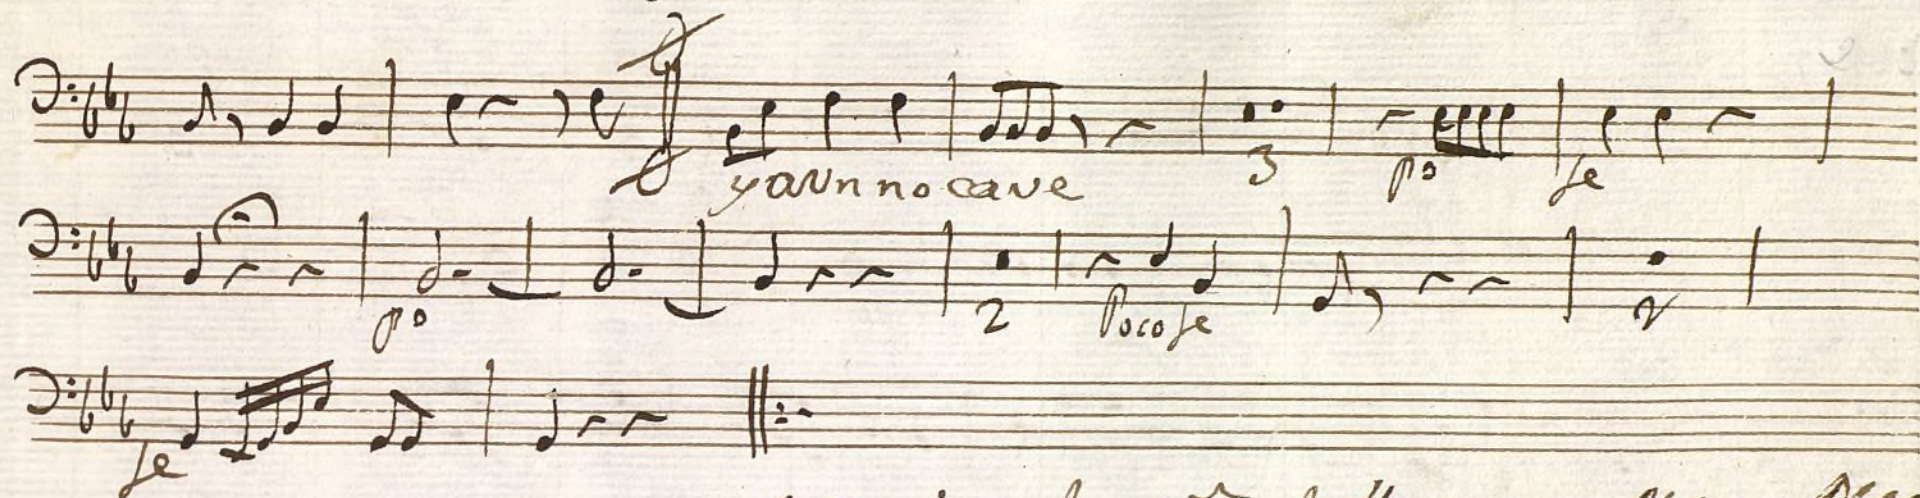 yaunnocave 3 po fe
po 2 Pocofe 2
fe